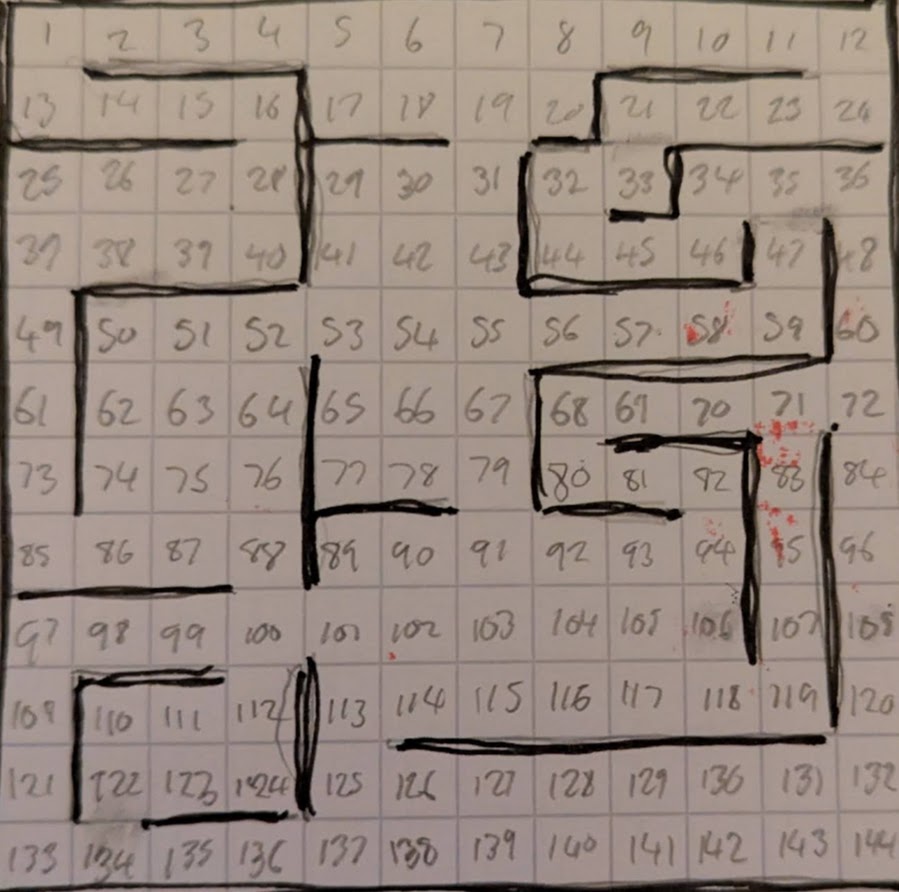 1 2 3 4 5 6 7 8 9 10 11 12
13 14 15 16 17 18 19 20 21 22 23 24
25 26 27 28 29 30 31 32 33 34 35 36
37 38 39 40 41 42 43 44 45 46 47 48
49 50 51 52 53 54 55 56 57 58 59 60
61 62 63 64 65 66 67 68 69 70 71 72
73 74 75 76 77 78 79 80 81 82 83 84
85 86 87 88 89 90 91 92 93 94 95 96
97 98 99 100 101 102 103 104 105 106 107 108
109 110 111 112 113 114 115 116 117 118 119 120
121 122 123 124 125 126 127 128 129 130 131 132
133 134 135 136 137 138 139 140 141 142 143 144